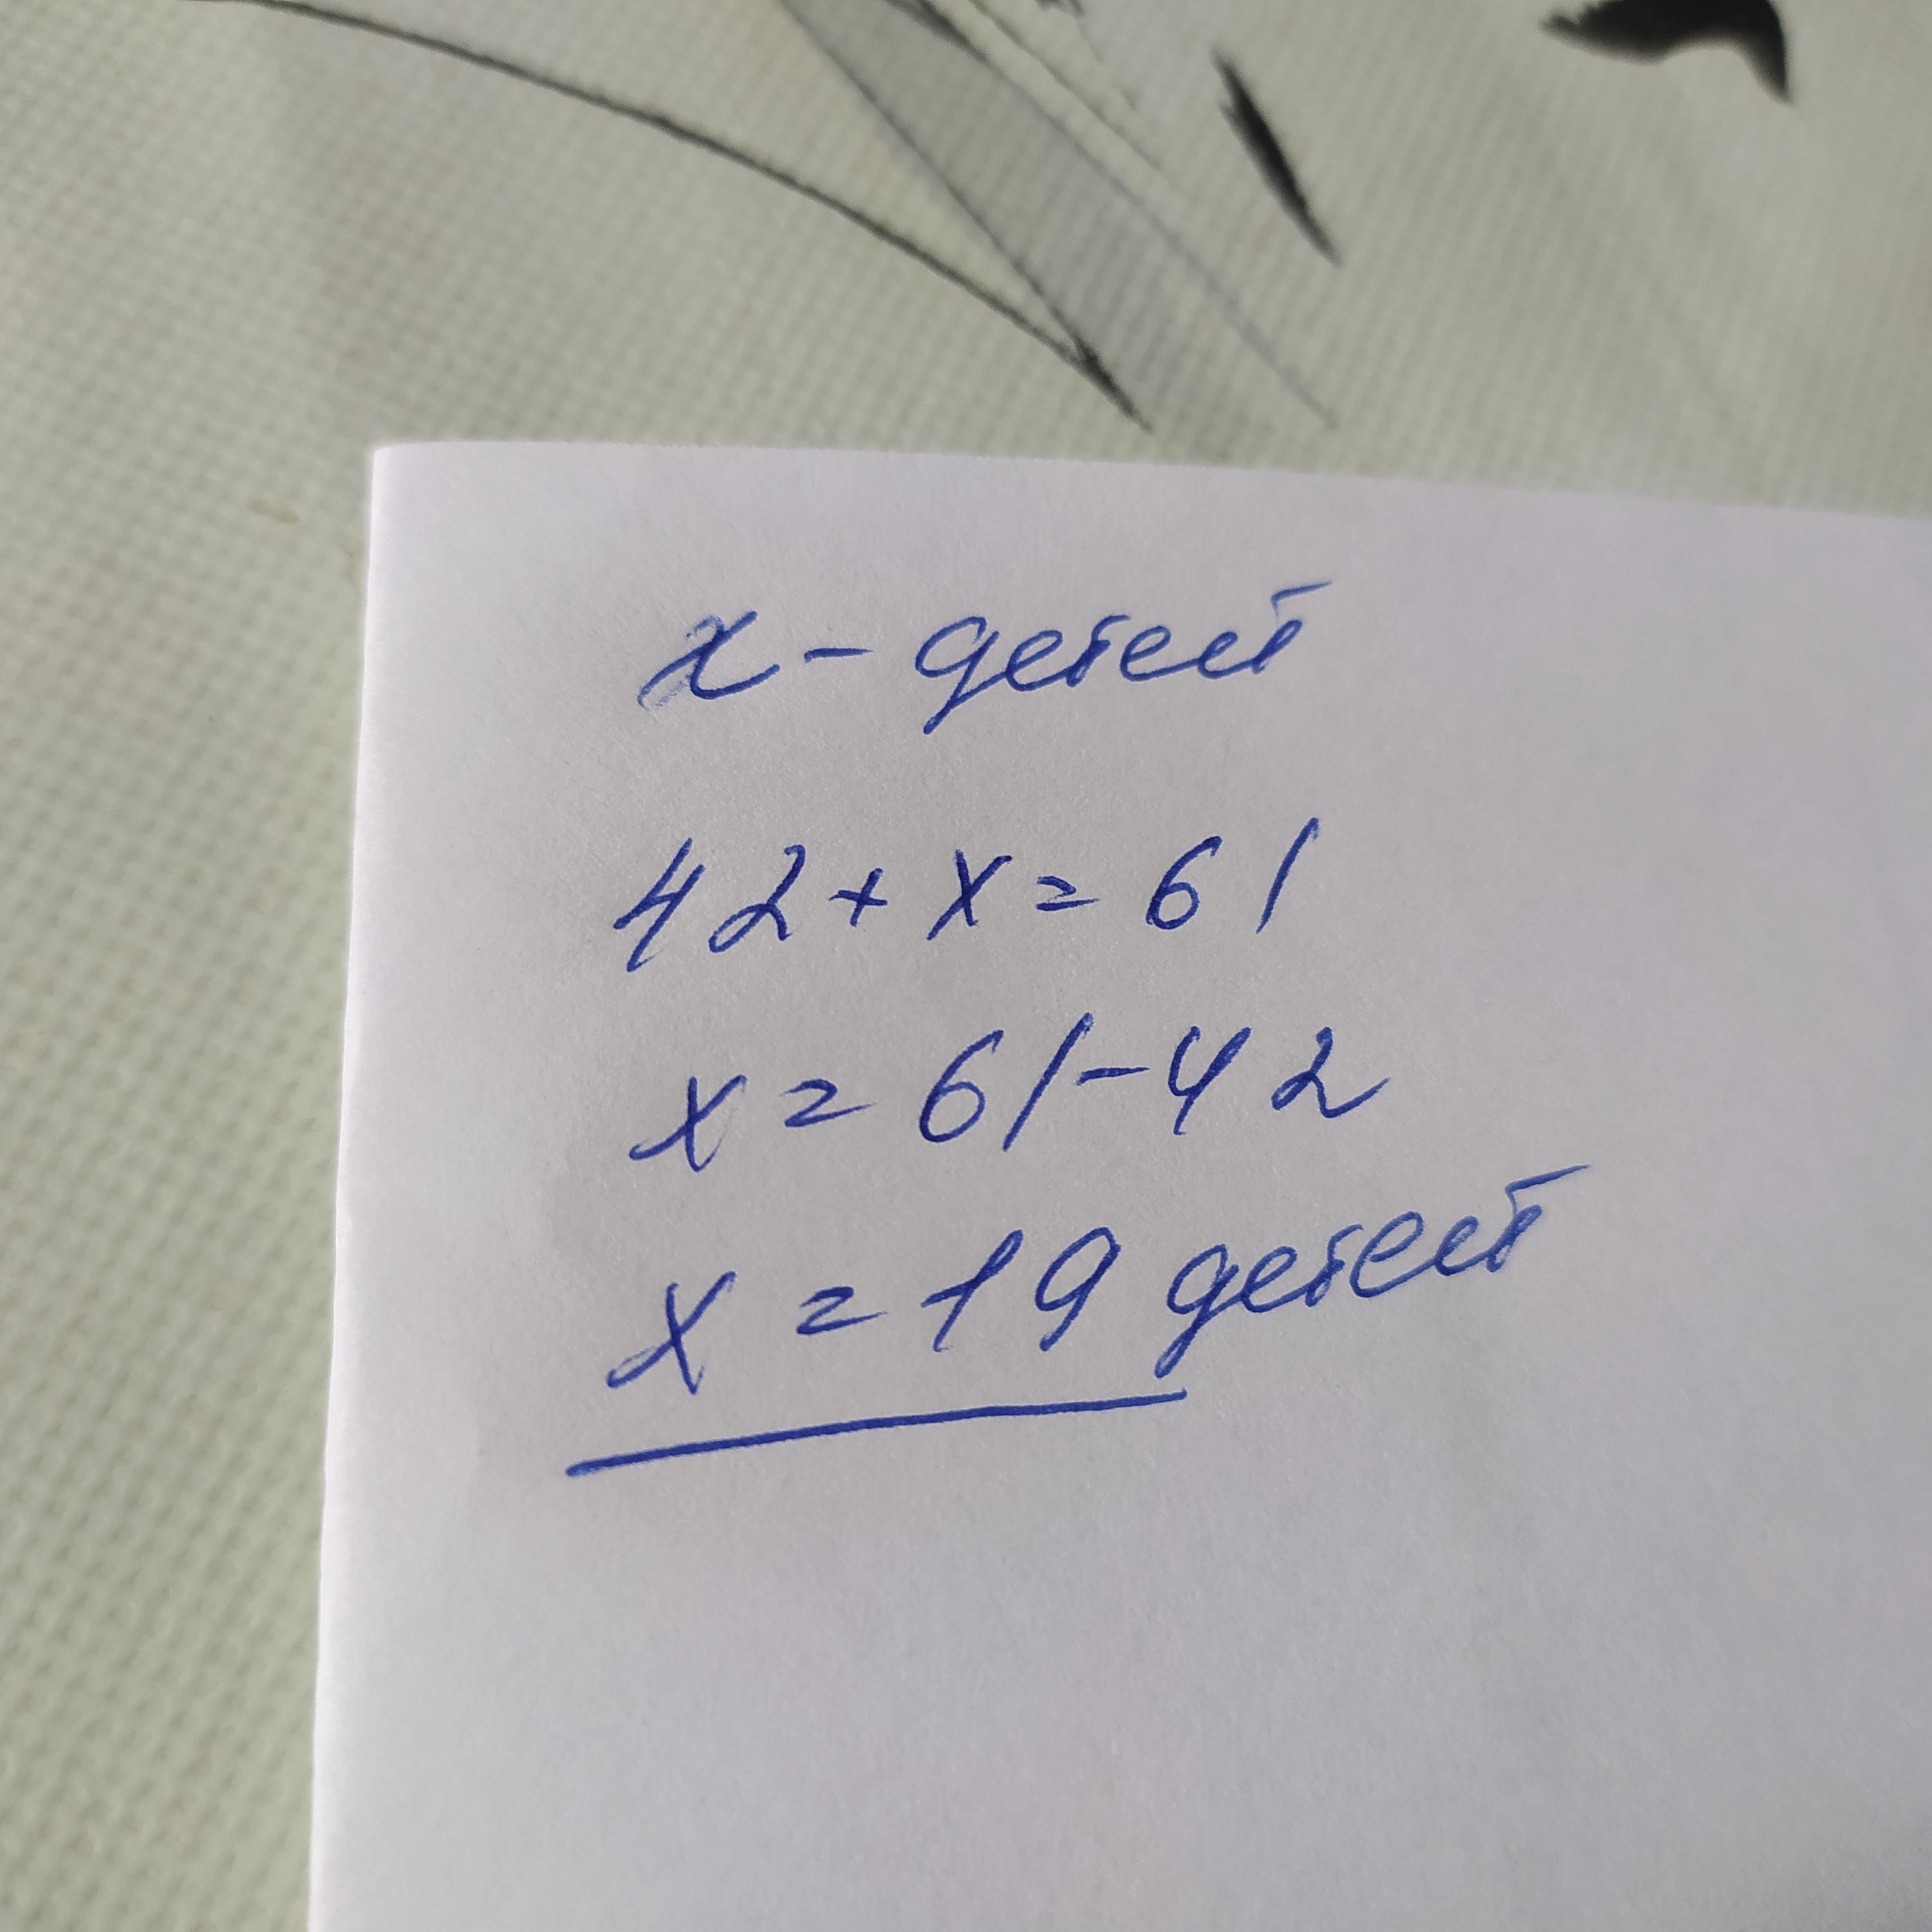 x - детей
42 + x = 61
x = 61 - 42
x = 19 детей